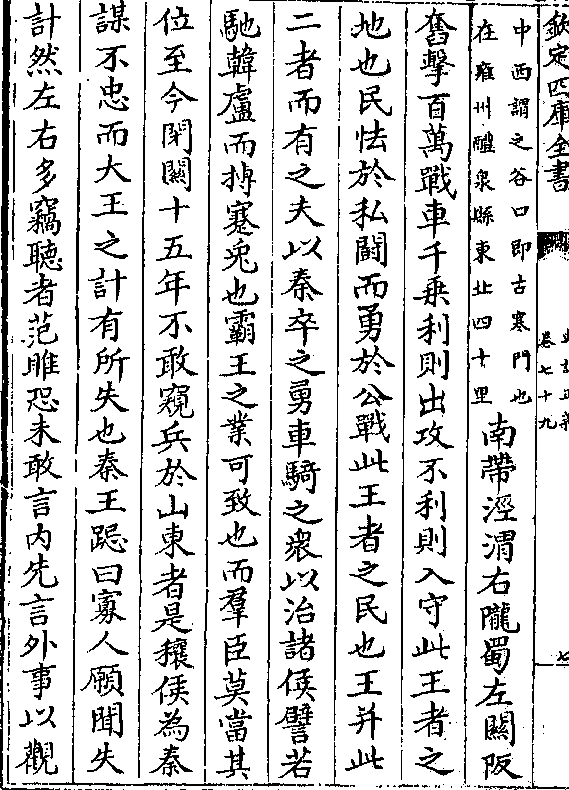 欽定四庫全書
史記正義
卷七十九
七
中西謂之谷口即古寒門也
在雍州醴泉縣東北四十里
南帶涇渭右隴蜀左關阪
奮擊百萬戰車千乘利則出攻不利則入守此王者之
地也民怯於私鬭而勇於公戰此王者之民也王并此
二者而有之夫以秦卒之勇車騎之衆以治諸侯譬若
馳韓盧而搏蹇兎也霸王之業可致也而羣臣莫當其
位至今閉關十五年不敢窺兵於山東者是穰侯為秦
謀不忠而大王之計有所失也秦王跽曰寡人願聞失
計然左右多竊聽者范雎恐未敢言内先言外事以觀